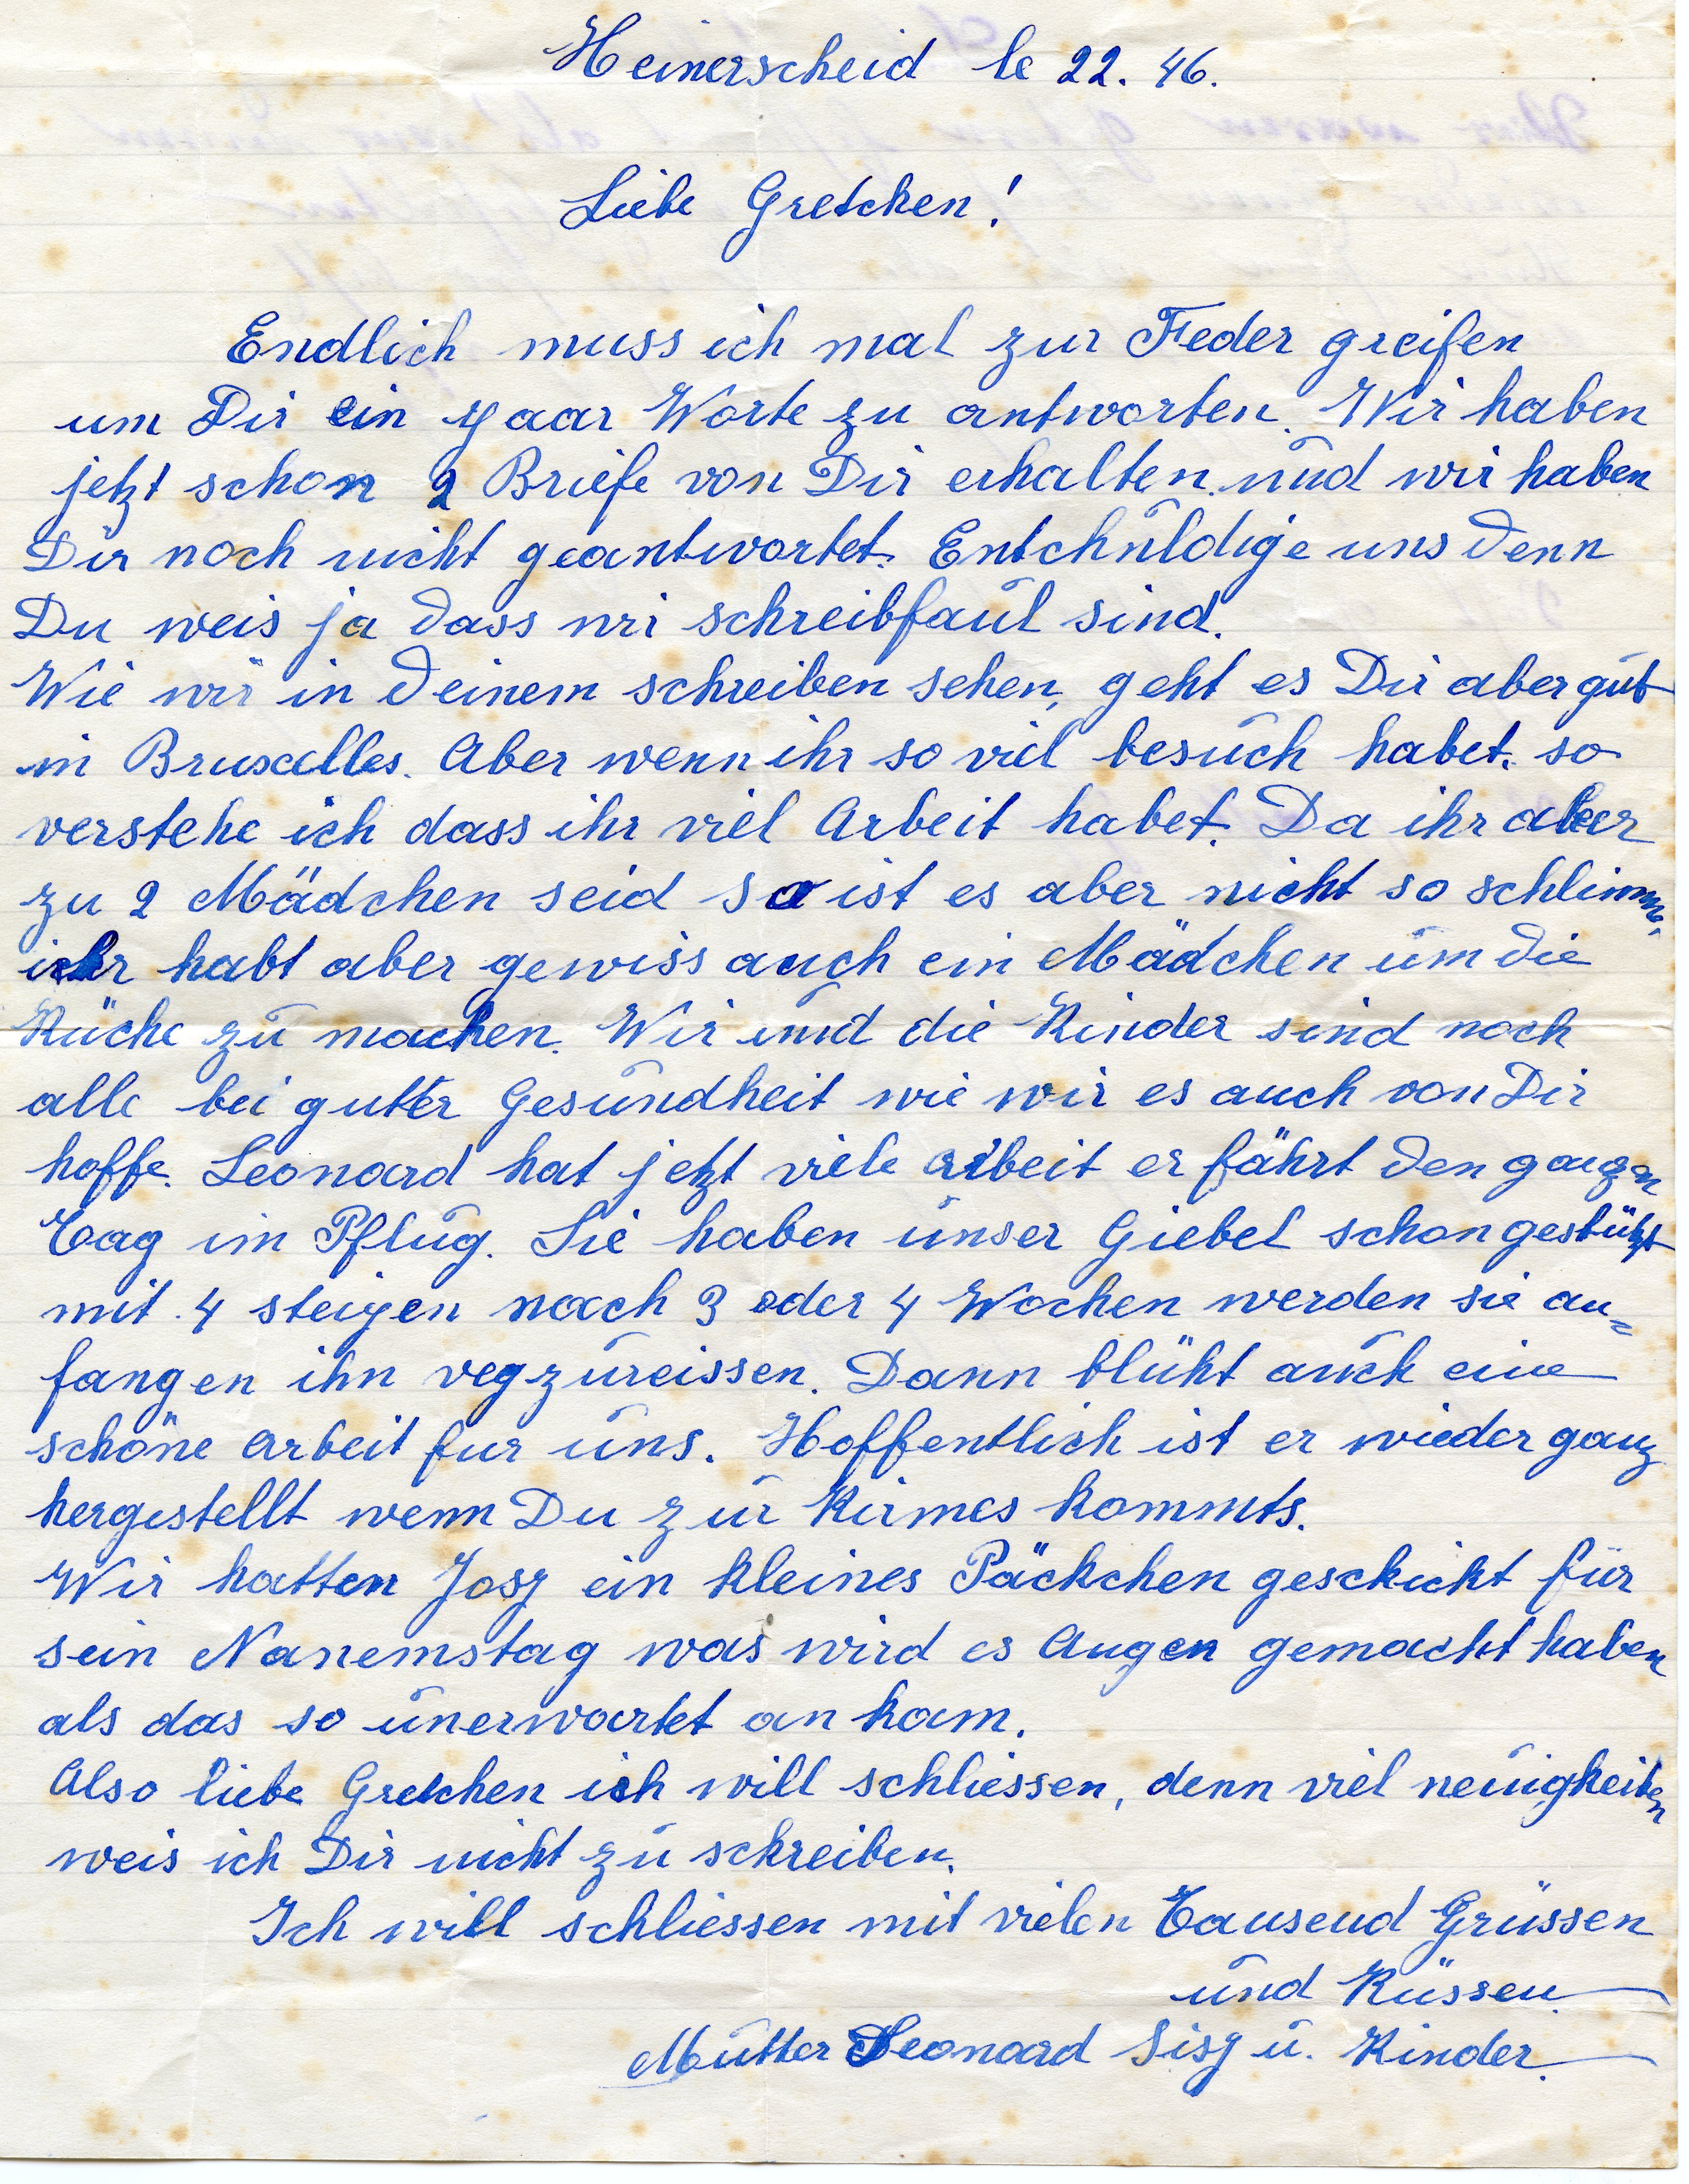 Heinerscheid le 22. 46.
Liebe Gretchen!
Endlich muss ich mal zur Feder greifen
um Dir ein paar Worte zu antworten. Wir haben
jetzt schon 2 Briefe von Dir erhalten. und wir haben
Dir noch nicht geantwortet. Entchuldige uns denn
Du weis ja dass wir schreibfaul sind.
Wie wir in deinem schreiben sehen, geht es Dir aber gut
in Bruxelles. Aber wenn ihr so viel besuch habet. so
verstehe ich dass ihr viel Arbeit habet. Da ihr aber
zu 2 Mädchen seid so ist es aber nicht so schlimm.
ihr habt aber gewiss auch ein Mädchen um die
Küche zu machen. Wir und die Kinder sind noch
alle bei gutter Gesundheit wie wir es auch von Dir
hoffe. Leonard hat jetzt viele arbeit er fährt den ganzen
Tag im Pflug. Sie haben unser Giebel schon gestützt
mit 4 steigen nach 3 oder 4 Wochen werden sie an=
fangen ihn vegzureissen. Dann blüht auch eine
schöne arbeit fur uns. Hoffentlich ist er wieder ganz
hergestellt wenn Du zur Kirmes kommts.
Wir hatten Josy ein kleines Päckchen geschickt für
sein Nanemstag was wird es Augen gemacht haben
als das so unerwartet an kam.
Also liebe Gretchen ich will schliessen, denn viel neuigkeiten
weis ich Dir nicht zu schreiben.
Ich will schliessen mit vielen Tausend Grüssen
und Küssen.
Mutter Leonard Sisy u. Kinder.